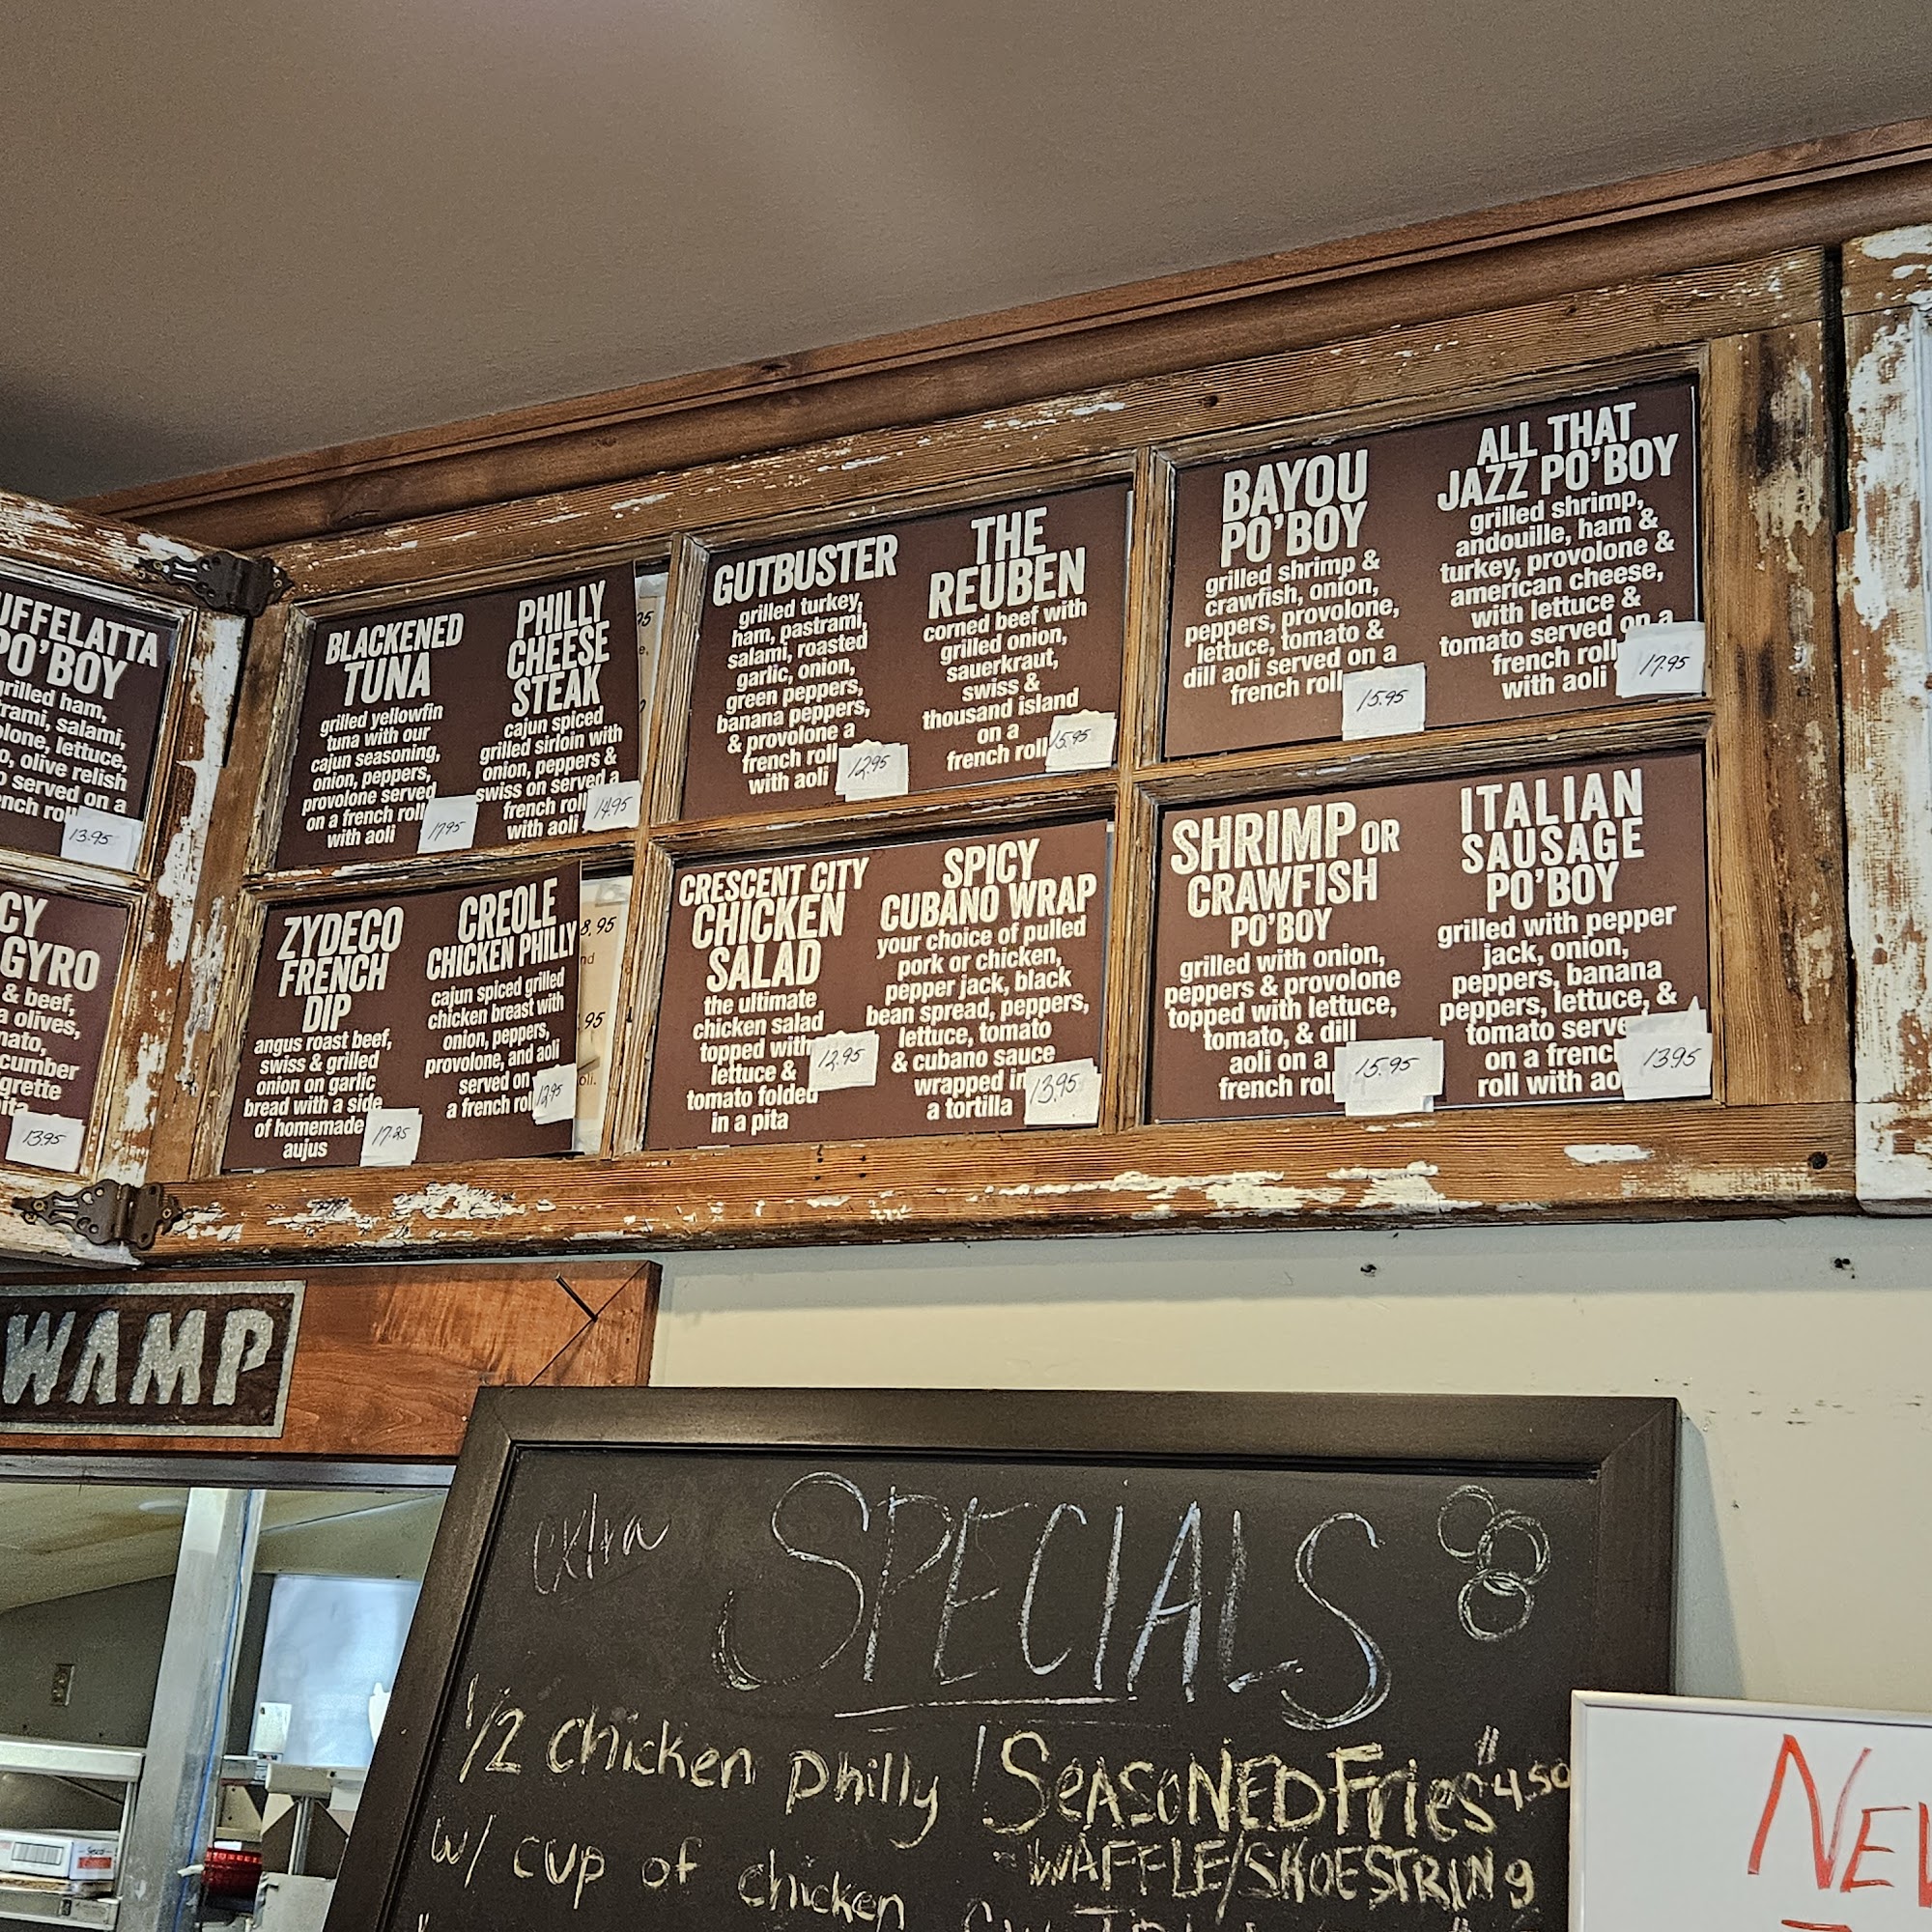 UFFELATTA
PO'BOY
grilled ham,
rami, salami,
lone, lettuce,
o, olive relish
o served on a
nch roll
13.95
CY
GYRO
& beef,
a olives,
nato,
cumber
grette
ita
13.95
BLACKENED
TUNA
grilled yellowfin
tuna with our
cajun seasoning,
onion, peppers,
provolone served
on a french roll
with aoli
17.95
PHILLY
CHEESE
STEAK
cajun spiced
grilled sirloin with
onion, peppers &
swiss on served a
french roll
with aoli
14.95
GUTBUSTER
grilled turkey,
ham, pastrami,
salami, roasted
garlic, onion,
green peppers,
banana peppers,
& provolone a
french roll
with aoli
12.95
THE
REUBEN
corned beef with
grilled onion,
sauerkraut,
swiss &
thousand island
on a
french roll
15.95
BAYOU
PO'BOY
grilled shrimp &
crawfish, onion,
peppers, provolone,
lettuce, tomato &
dill aoli served on a
french roll
15.95
ALL THAT
JAZZ PO'BOY
grilled shrimp,
andouille, ham &
turkey, provolone &
american cheese,
with lettuce &
tomato served on a
french roll
with aoli
17.95
ZYDECO
FRENCH
DIP
angus roast beef,
swiss & grilled
onion on garlic
bread with a side
of homemade
aujus
CREOLE
CHICKEN PHILLY
cajun spiced grilled
chicken breast with
onion, peppers,
provolone, and aoli
served on
a french roll
12.95
8.95
.95
CRESCENT CITY
CHICKEN
SALAD
the ultimate
chicken salad
topped with
lettuce &
tomato folded
in a pita
12.95
SPICY
CUBANO WRAP
your choice of pulled
pork or chicken,
pepper jack, black
bean spread, peppers,
lettuce, tomato
& cubano sauce
wrapped in
a tortilla
13.95
SHRIMP OR
CRAWFISH
PO'BOY
grilled with onion,
peppers & provolone
topped with lettuce,
tomato, & dill
aoli on a
french roll
15.95
ITALIAN
SAUSAGE
PO'BOY
grilled with pepper
jack, onion,
peppers, banana
peppers, lettuce, &
tomato serve
on a french
roll with ao
13.95
WAMP
extra
SPECIALS
1/2 chicken philly
w/ cup of chicken
SEASONED Fries $4.50
WAFFLE/SHOESTRINg
NEW